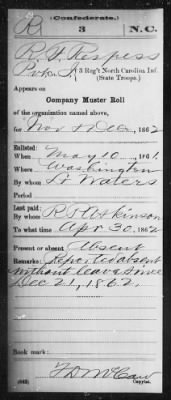 (Confederate.)
R 3 N.C.
R. F. Respess
Pvt Co. I, 3 Reg't North Carolina Inf.
(State Troops.)
Appears on
Company Muster Roll
of the organization named above,
for Nov & Dec, 1862
Enlisted:
When May 10, 1861.
Where Washington
By whom Lt Waters
Period
Last paid:
By whom R F Atkinson
To what time Apr 30, 1862
Present or absent Absent
Remarks: Reported absent
without leave since
Dec 21, 1862.
Book mark:
F D McCaw
Copyist.